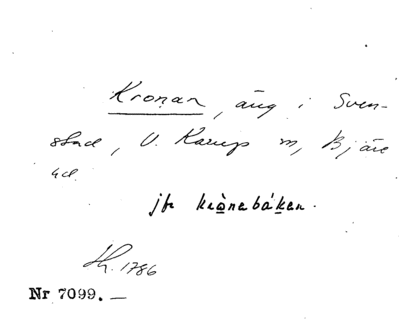 Kronan, äng i Sven-
stad, V. Karup m, Bjäre
hd.
jfr krònabákan.
Sk. 1786
Nr 7099. —